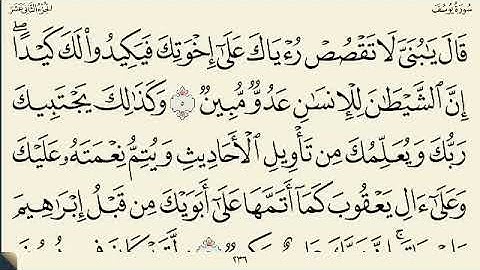 سورة يوسف
الجزء الثاني عشر
قَالَ يَٰبُنَىَّ لَا تَقۡصُصۡ رُءۡيَاكَ عَلَىٰٓ إِخۡوَتِكَ فَيَكِيدُواْ لَكَ كَيۡدًاۖ
إِنَّ ٱلشَّيۡطَٰنَ لِلۡإِنسَٰنِ عَدُوّٞ مُّبِينٞ ٥ وَكَذَٰلِكَ يَجۡتَبِيكَ
رَبُّكَ وَيُعَلِّمُكَ مِن تَأۡوِيلِ ٱلۡأَحَادِيثِ وَيُتِمُّ نِعۡمَتَهُۥ عَلَيۡكَ
وَعَلَىٰٓ ءَالِ يَعۡقُوبَ كَمَآ أَتَمَّهَا عَلَىٰٓ أَبَوَيۡكَ مِن قَبۡلُ إِبۡرَٰهِيمَ
٢٣٦